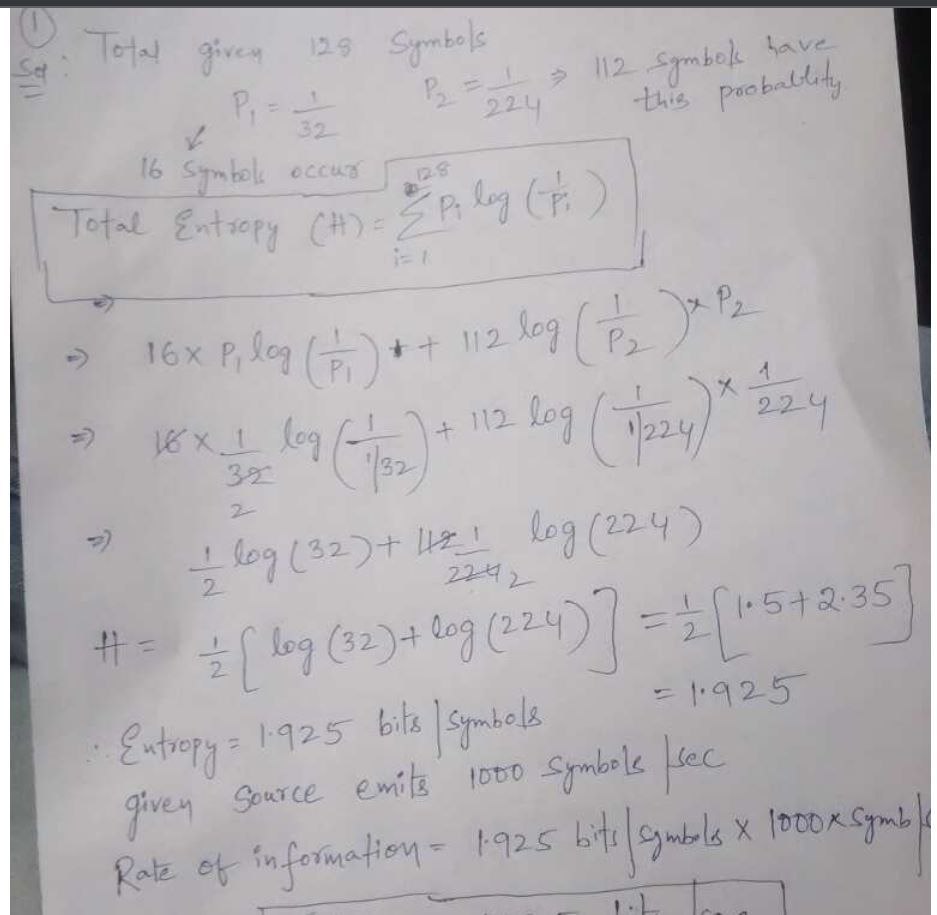 ①
Sol : Total given 128 Symbols
P₁ = 1/32 P₂ = 1/224 ⇒ 112 symbols have this probability
↙
16 Symbols occur
Total Entropy (H) = 128 Σ i=1 Pi log (1/Pi)
⇒
⇒ 16 × P₁ log (1/P₁) + + 112 log (1/P₂) × P₂
⇒ 16 × 1/32 log (1/1/32) + 112 log (1/1/224) × 1/224
2
⇒ 1/2 log (32) + 112 1/224 2 log (224)
H = 1/2 [log (32) + log (224)] = 1/2 [1.5 + 2.35]
= 1.925
∴ Entropy = 1.925 bits | symbols
given Source emits 1000 symbols | sec
Rate of information = 1.925 bits | symbols × 1000 × Symb |